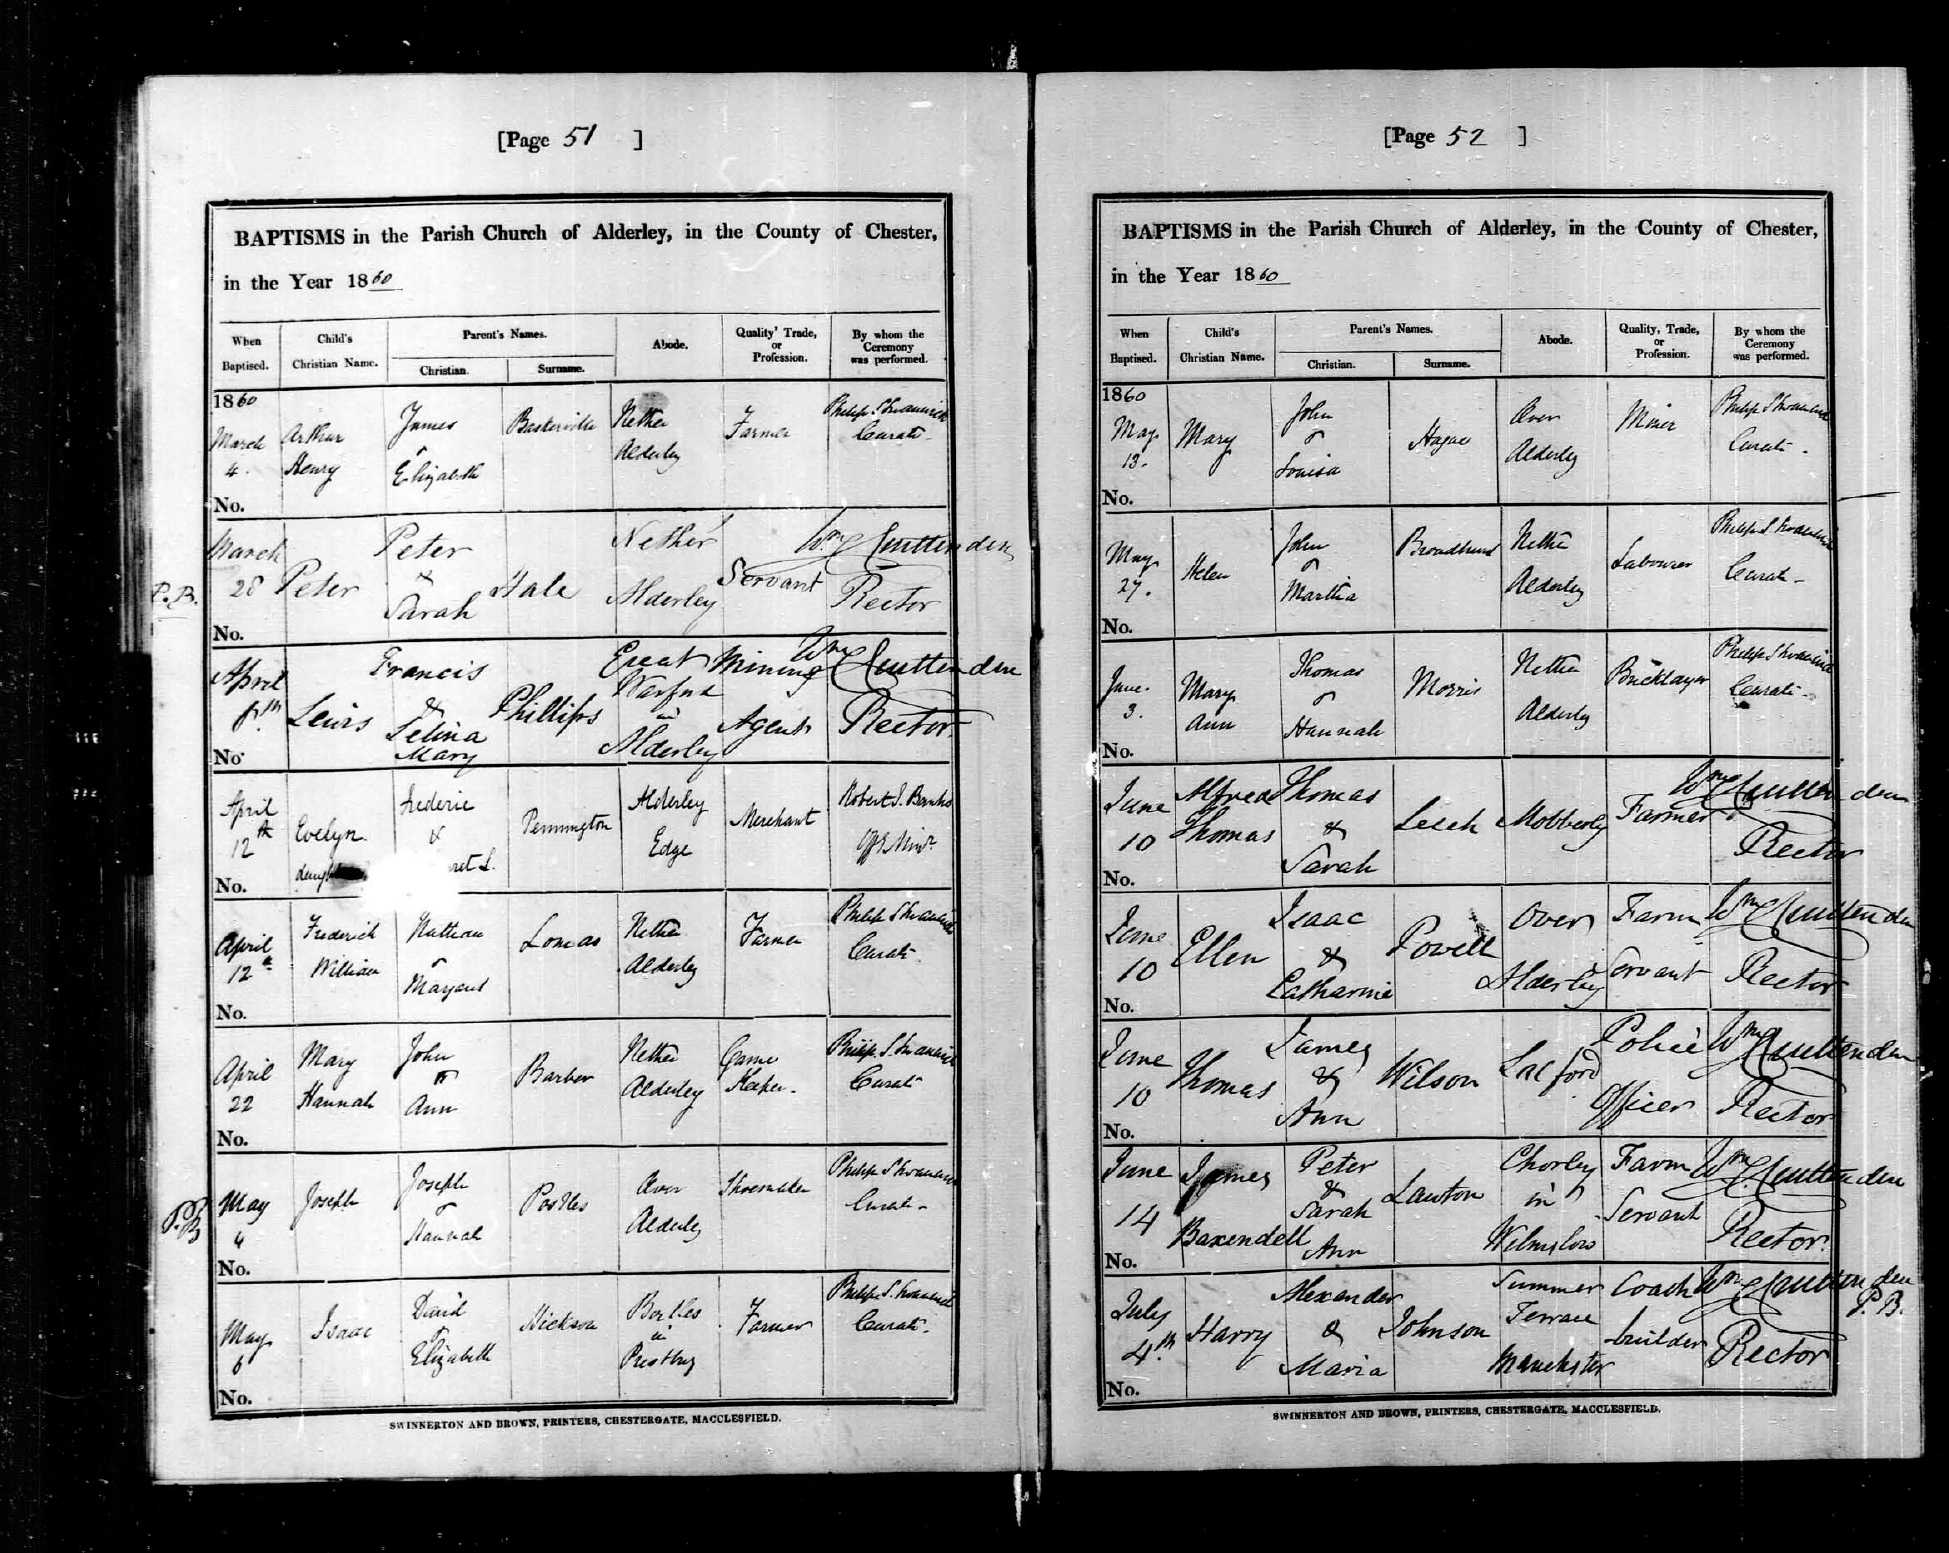 [Page 51 ]
BAPTISMS in the Parish Church of Alderley, in the County of Chester,
in the Year 1860
When Baptised. Child's Christian Name. Parent's Names. Christian. Surname. Abode. Quality' Trade, or Profession. By whom the Ceremony was performed.
1860
March 4. Arthur Henry James & Elizabeth Baskerville Nether Alderley Farmer Philip S. Curate
No.
P.B. March 28 Peter Peter & Sarah Hale Nether Alderley Servant Wm Rector
No.
April Lewis Francis & Selina Mary Phillips Great Warford in Alderley Mining Agent Wm Rector
No.
April 12th Evelyn Frederic & ret L. Pennington Alderley Edge Merchant Robert S. Offg Minr.
No.
April 12th Frederick William Matthew & Margaret Lomas Nether Alderley Farmer Philip S. Curate
No.
April 22 Mary Hannah John & Ann Barber Nether Alderley Game Keeper Philip S. Curate
No.
P.B. May 4 Joseph Joseph & Hannah Postles Over Alderley Shoemaker Philip S. Curate
No.
May 6 Isaac David & Elizabeth Hickson in Prestbury Farmer Philip S. Curate
No.
SWINNERTON AND BROWN, PRINTERS, CHESTERGATE, MACCLESFIELD.
[Page 52 ]
BAPTISMS in the Parish Church of Alderley, in the County of Chester,
in the Year 1860
When Baptised. Child's Christian Name. Parent's Names. Christian. Surname. Abode. Quality, Trade, or Profession. By whom the Ceremony was performed.
1860
May 13. Mary John & Louisa Hague Over Alderley Miner Philip S. Curate
No.
May 27. Helen John & Martha Broadhurst Nether Alderley Labourer Philip S. Curate
No.
June 3. Mary Ann Thomas & Hannah Morris Nether Alderley Bricklayer Philip S. Curate
No.
June 10 Alfred Thomas Thomas & Sarah Leech Mobberley Farmer Wm Rector
No.
June 10 Ellen Isaac & Catharine Powell Over Alderley Farm Servant Wm Rector
No.
June 10 Thomas James & Ann Wilson Police Officer Wm Rector
No.
June 14 James Baxendell Peter & Sarah Ann Lawton Chorley in Wilmslow Farm Servant Wm Rector
No.
July 4th Harry Alexander & Maria Johnson Summer Terrace Manchester Coach builder Wm Rector P.B.
No.
SWINNERTON AND BROWN, PRINTERS, CHESTERGATE, MACCLESFIELD.